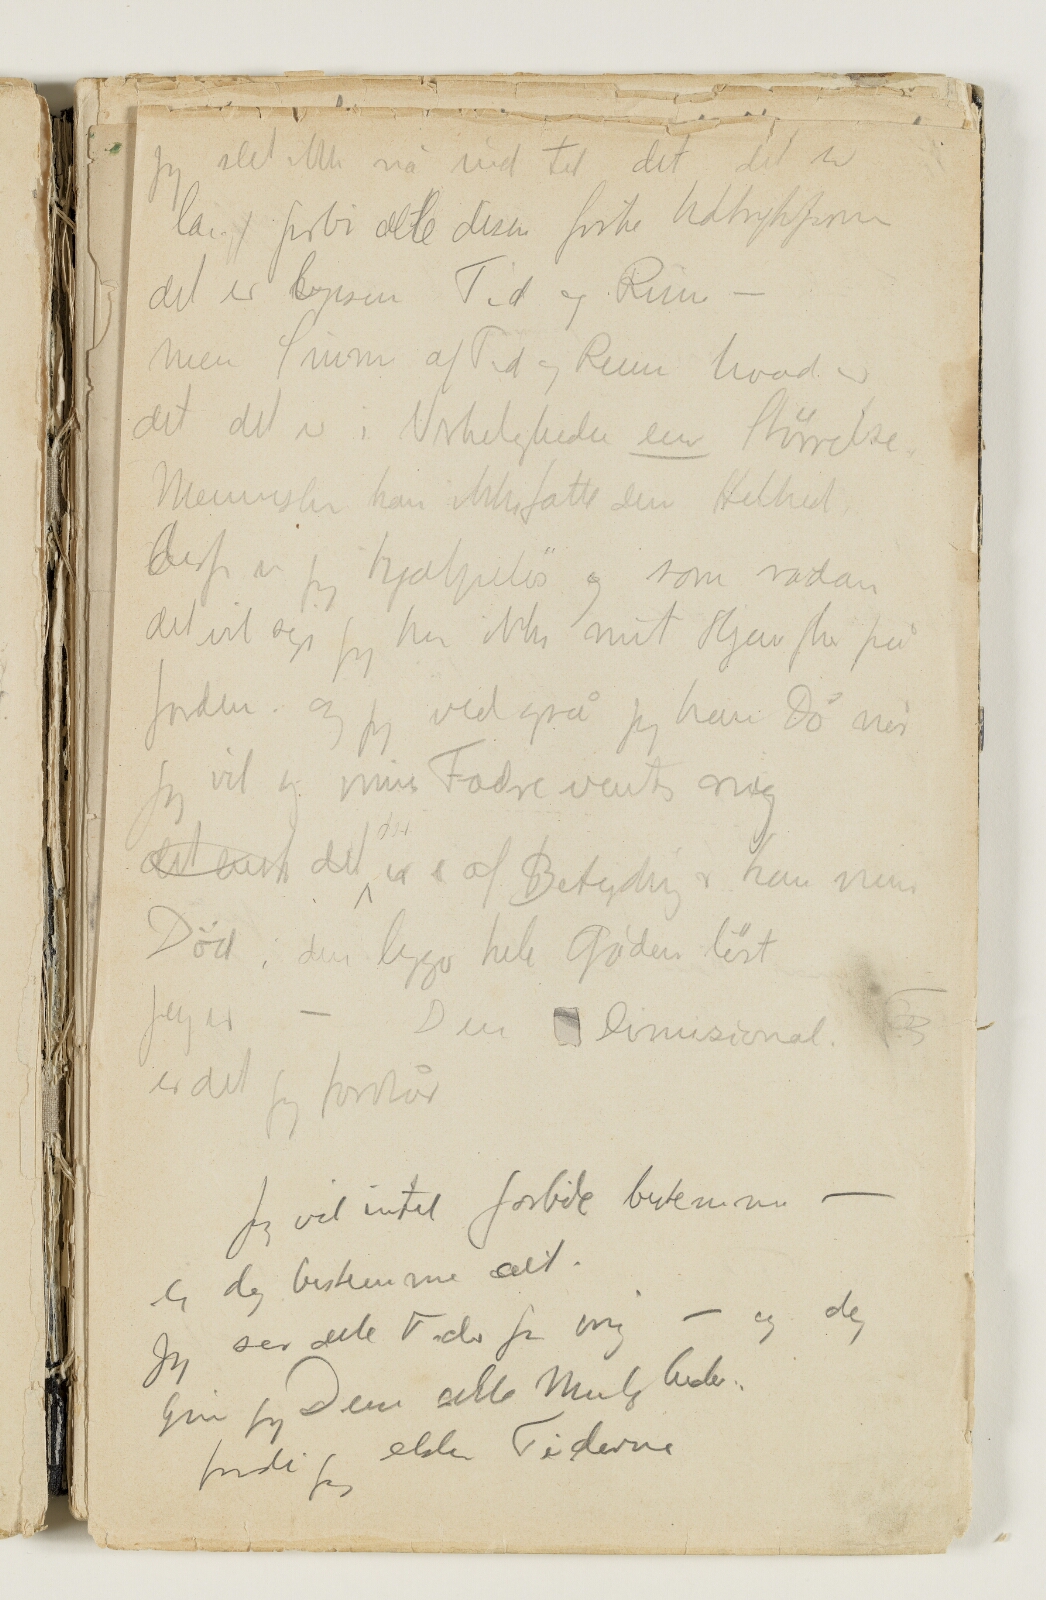 jeg slet ikke nå ind til det det er
langt forbi alle disse Udtryksform
det er Tid og Rum —
men af Tid og Rum hvad er
det det er i Virkeligheden een Störrelse.
Mennesker kan ikke fatte den Helhed.
Derfor er jeg hjælpelös og som sådan
det vil sige jeg har ikke mit Hjem her på
Jorden. og jeg ved også jeg kan Dö når
jeg vil og mine Fædre venter mig
det det der er af Betydning er kun min
Död, i den ligger hele Gåden löst
jeg er — Den Dimensional.
er det jeg forstår
Jeg vil intet bestemme —
og dog bestemme alt.
Jeg ser alle Tider for mig — og dog
giver jeg Dem alle Muligheder.
fordi jeg elsker Tiderne